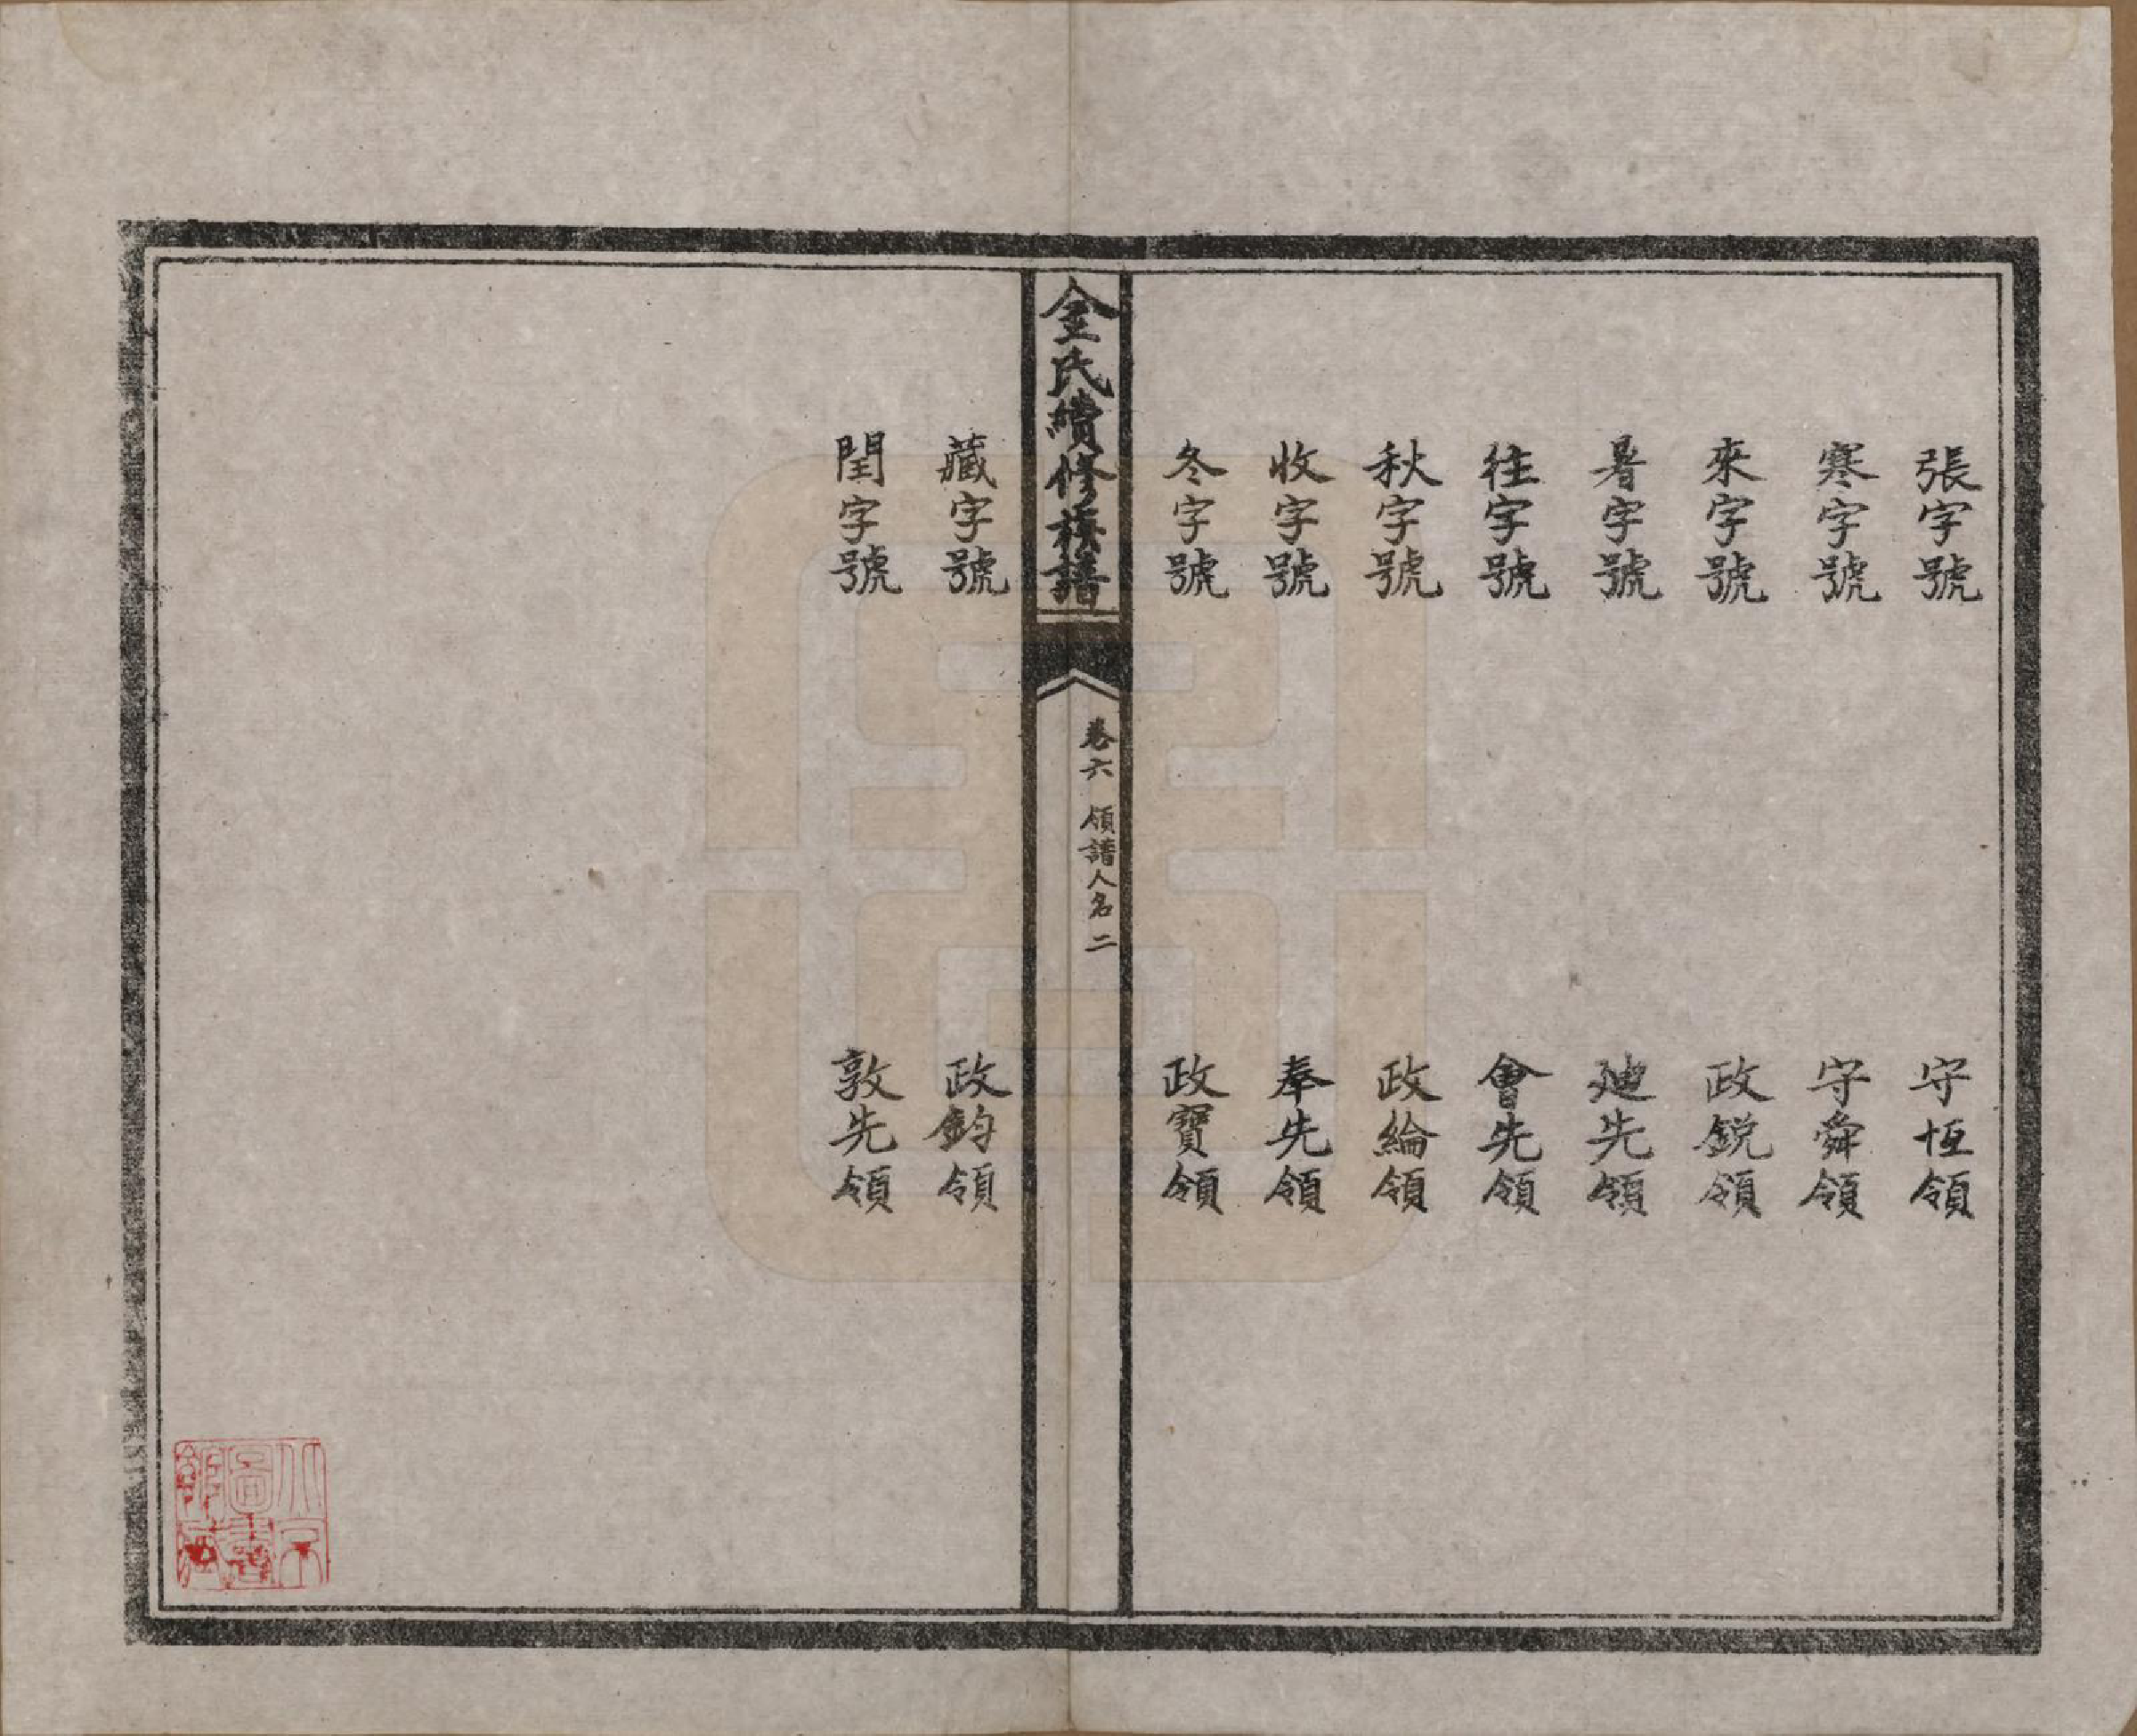 張字號　守恆領
寒字號　守舜領
來字號　政鋭領
暑字號　廸先領
往字號　會先領
秋字號　政綸領
收字號　奉先領
冬字號　政寶領
全氏續修族譜
卷六　領譜人名　二
藏字號　政鈞領
閏字號　敦先領
北京
圖書
館藏